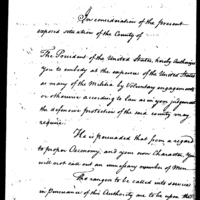 In consideration of the present
exposed situation of the County of
The President of the United States, hereby Authorizes
You to embody at the expence of the United States
as many of the Militia by Voluntary engagements
or otherwise according to Law as in your judgment
the defensive protection of the said county may
require.
He is persuaded that from a regard
to proper Oeconomy, and your own Character, You
will not call out an unnecessary number of Men.
The rangers to be called into service
in pursuance of this Authority are to be upon the